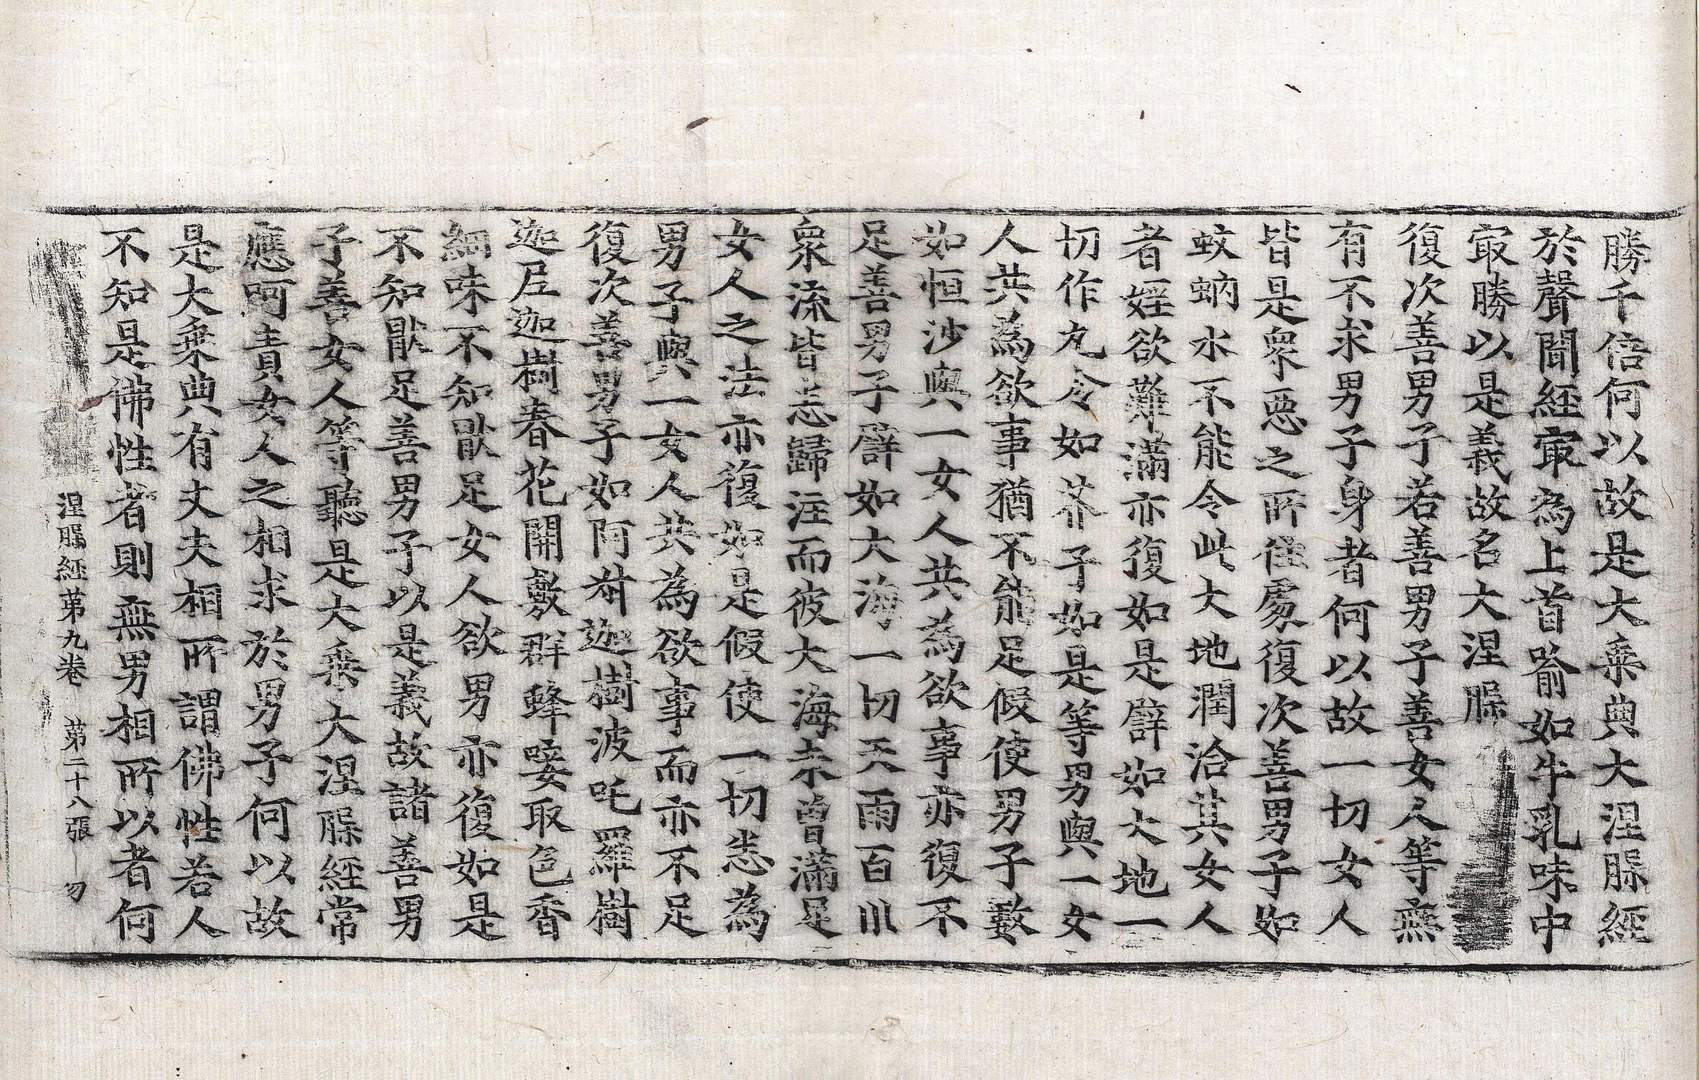 勝千倍何以故是大乗典大涅槃經
於聲聞經㝡為上首喻如牛乳味中
㝡勝以是義故名大涅槃
復次善男子若善男子善女人等無
有不求男子身者何以故一切女人
皆是衆惡之所住處復次善男子如
蚊蚋水不能令此大地潤洽其女人
者婬欲難滿亦復如是譬如大地一
切作丸令如芥子如是等男與一女
人共為欲事猶不能足假使男子數
如恒沙與一女人共為欲事亦復不
足善男子譬如大海一切天雨百川
衆流皆悉歸注而彼大海未曾滿足
女人之法亦復如是假使一切悉為
男子與一女人共為欲事而亦不足
復次善男子如阿叔迦樹波吒羅樹
迦尼迦樹春花開敷群蜂唼取色香
細味不知猒足女人欲男亦復如是
不知猒足善男子以是義故諸善男
子善女人等聽是大乗大涅槃經常
應呵責女人之相求於男子何以故
是大乗典有丈夫相所謂佛性若人
不知是佛性者則無男相所以者何
涅槃經第九卷 第二十八張 勿